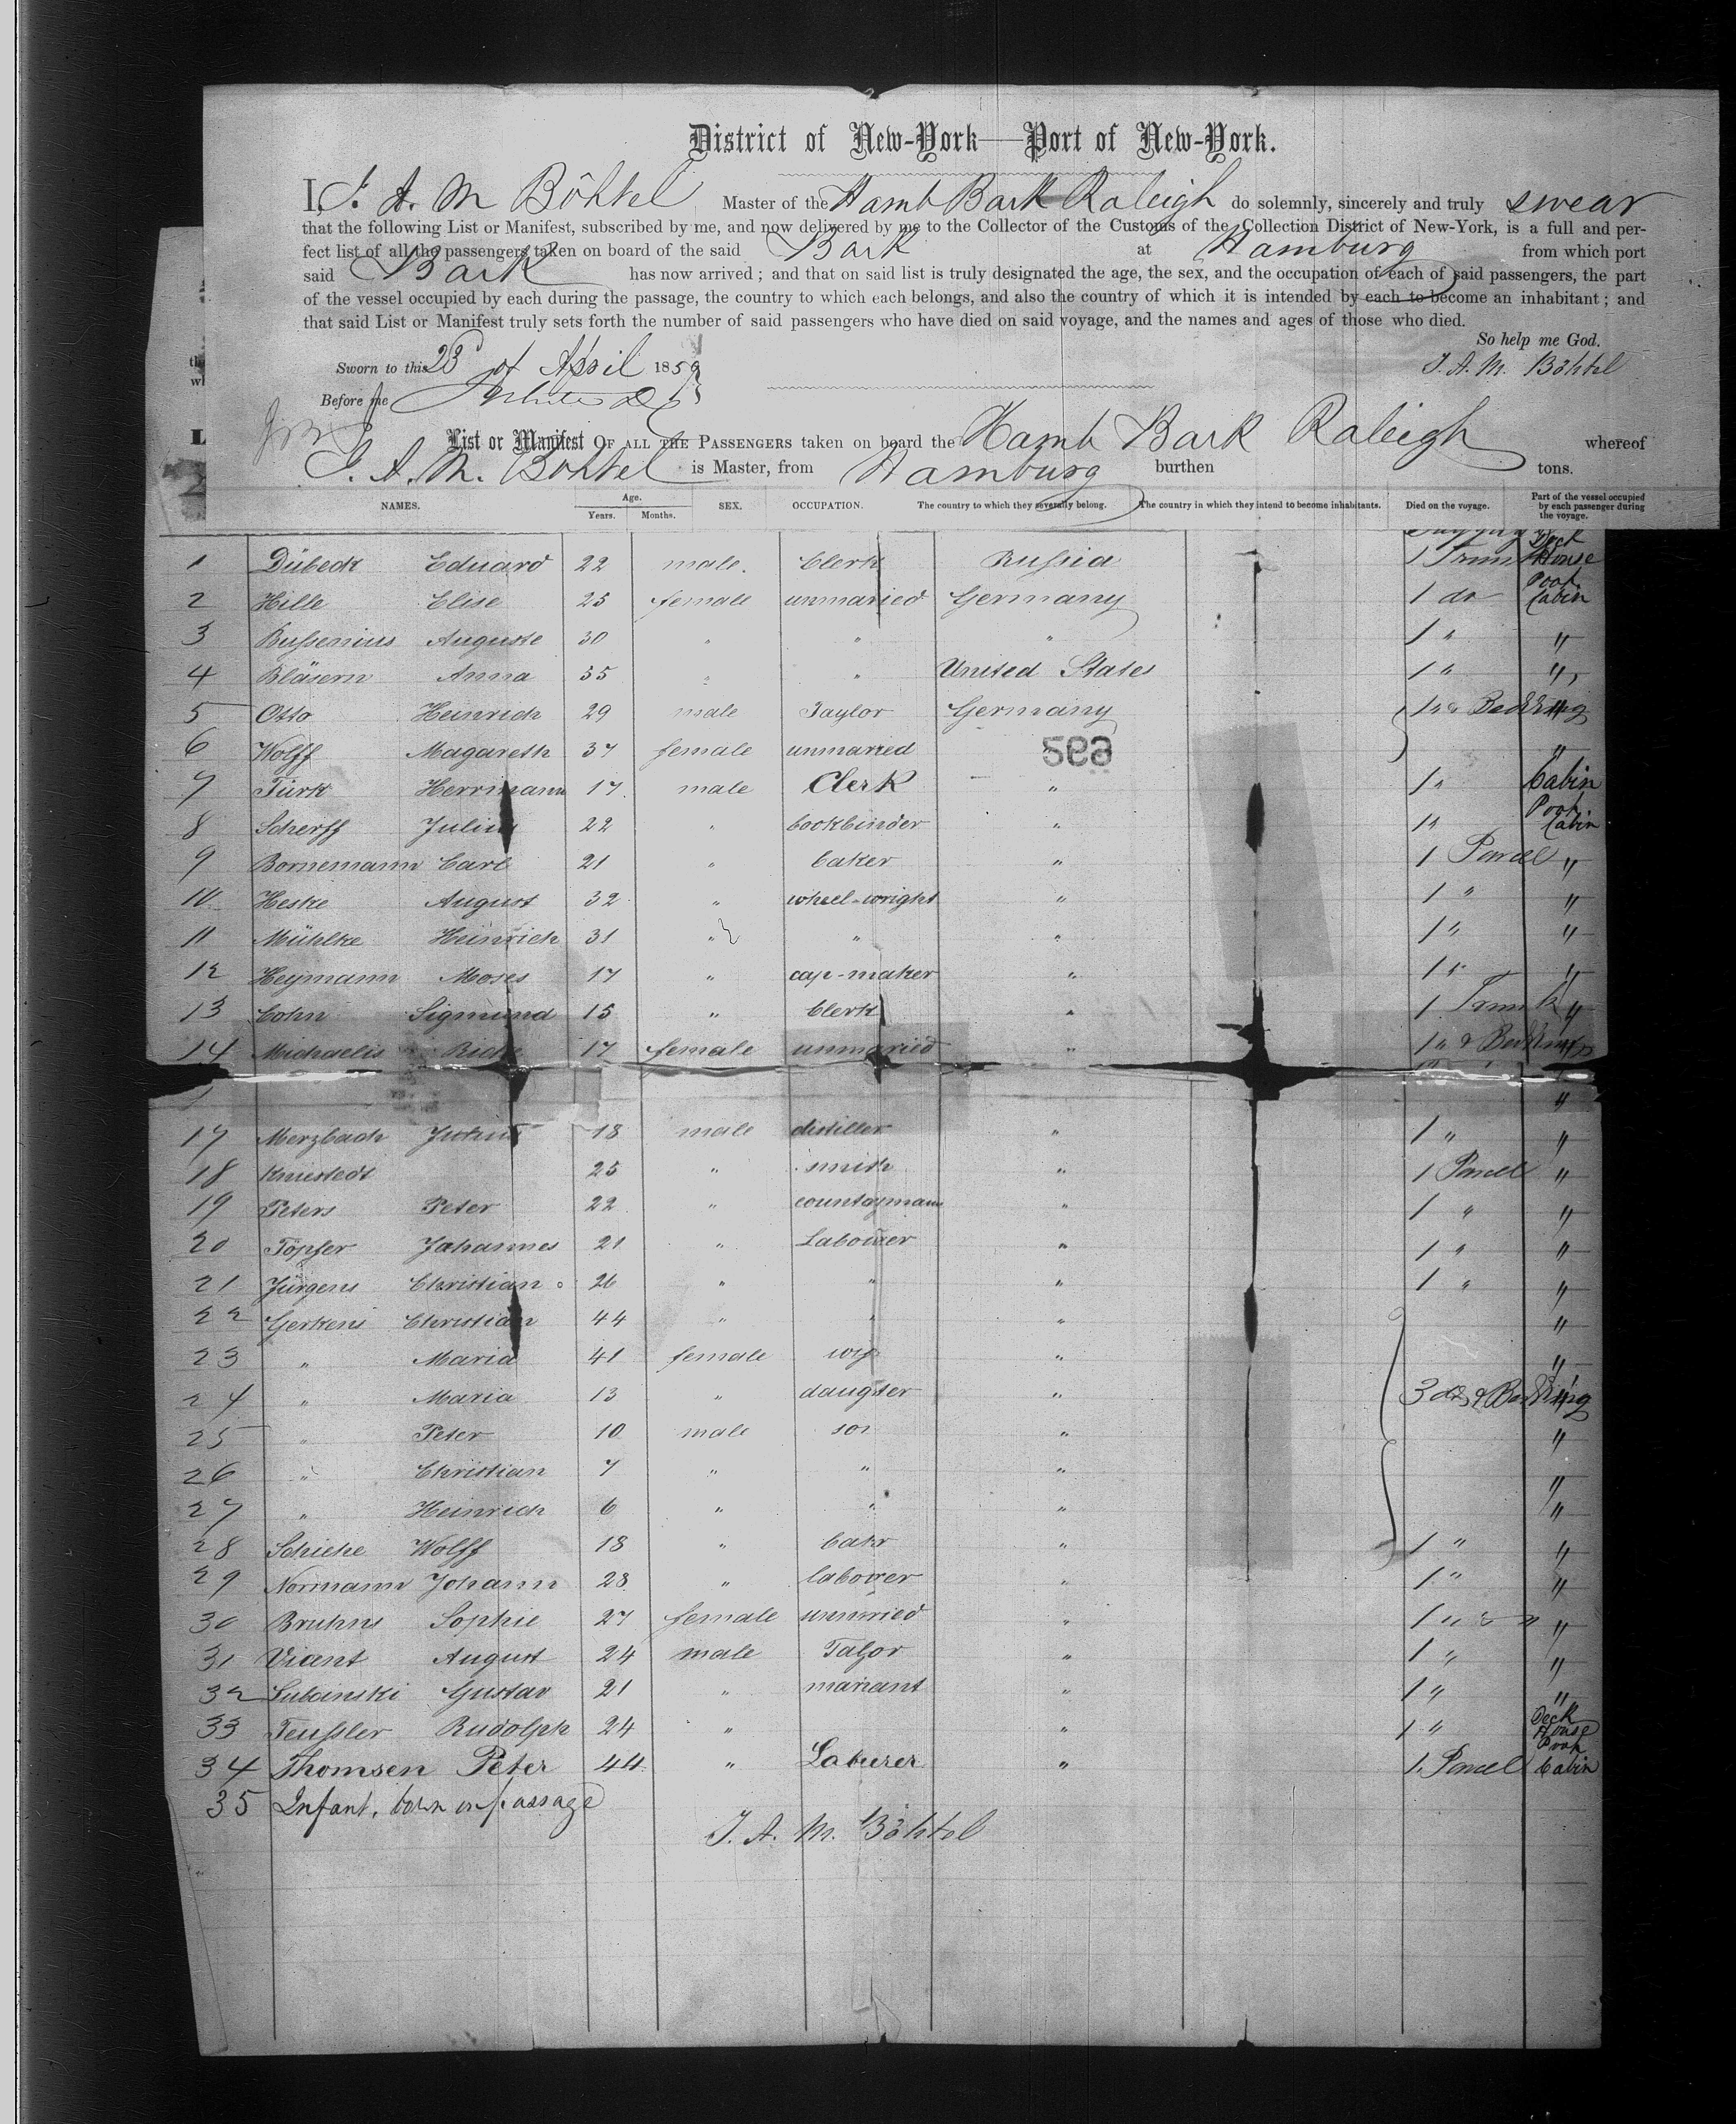 District of New-York—Port of New-York.
I, J. A. M Böhtel Master of the Hamb Bark Raleigh do solemnly, sincerely and truly swear
that the following List or Manifest, subscribed by me, and now delivered by me to the Collector of the Customs of the Collection District of New-York, is a full and per-
fect list of all the passengers taken on board of the said Bark at Hamburg from which port
said Bark has now arrived; and that on said list is truly designated the age, the sex, and the occupation of each of said passengers, the part
of the vessel occupied by each during the passage, the country to which each belongs, and also the country of which it is intended by each to become an inhabitant; and
that said List or Manifest truly sets forth the number of said passengers who have died on said voyage, and the names and ages of those who died.
So help me God.
Sworn to this 23 of April 1859
J. A. M. Böhtel
Before me
List or Manifest OF ALL THE PASSENGERS taken on board the Hamb Bark Raleigh whereof
J. A. M. Böhtel is Master, from Hamburg burthen tons.
NAMES. Age. Years. Months. SEX. OCCUPATION. The country to which they severally belong. The country in which they intend to become inhabitants. Died on the voyage. Part of the vessel occupied by each passenger during the voyage.
1 Dübeck Eduard 22 male. Clerk Russia 1 Trunk Deck House
2 Hille Elise 25 female unmaried Germany 1 do Poop Cabin
3 Bussenius Auguste 30 " " " 1 " "
4 Bläsern Anna 35 " " United States 1 " "
5 Otto Heinrich 29 male Taylor Germany 1 " & Bedding "
6 Wolff Magareth 37 female unmaried " "
296
7 Türk Herrmann 17 male Clerk " 1 " Cabin
8 Scherff Julius 22 " bookbinder " 1 " Poop Cabin
9 Bornemann Carl 21 " baker " 1 Parcel "
10 Heske August 32 " wheel-wright " 1 " "
11 Mühlke Heinrich 31 " " " 1 " "
12 Heymann Moses 17 " cap-maker " 1 " "
13 Cohn Sigmund 15 " Clerk " 1 Trunk "
14 Michaelis Ricke 17 female unmaried " 1 " & Bedding "
"
17 Merzbach Julius 18 male distiller " 1 " "
18 Kniestedt 25 " smith " 1 Parcel "
19 Peters Peter 22 " countrymann " 1 " "
20 Töpfer Johannes 21 " Labourer " 1 " "
21 Jürgens Christian 26 " " " 1 " "
22 Gerkens Christian 44 " " " "
23 " Maria 41 female wif " "
24 " Maria 13 " daugter " 3 do & Bedding "
25 " Peter 10 male son " "
26 " Christian 7 " " " "
27 " Heinrich 6 " " " "
28 Schiehe Wolff 18 " " 1 " "
29 Normann Johann 28 " labourer " 1 " "
30 Bruhns Sophie 27 female unmried " 1 " & " "
31 Viant August 24 male Taylor " 1 " "
32 Lubainski Gustav 21 " " 1 " "
33 Teussler Rudolph 24 " " 1 " Deck House
34 Thomsen Peter 44 " Laburer " 1 Parcel Poop Cabin
35 Infant, born on passage
J. A. M. Böhtel